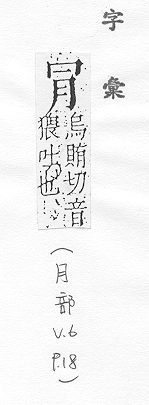 字彙
烏賄切音
猥也
(月部 V.6 P.18)